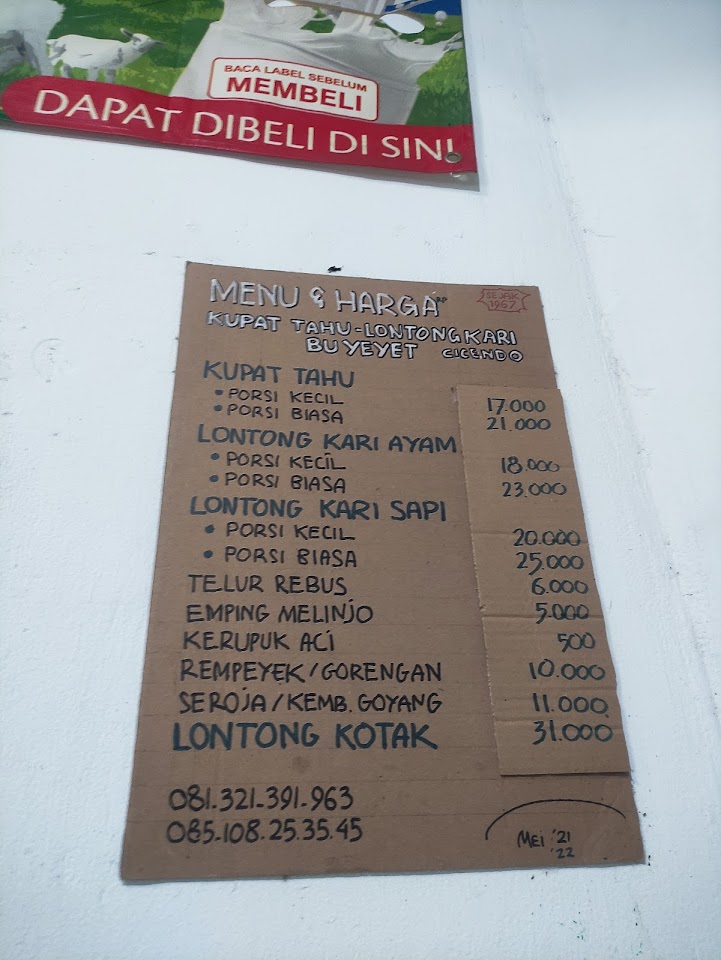 BACA LABEL SEBELUM
MEMBELI
DAPAT DIBELI DI SINI
MENU & HARGA RP
SEJAK
1967
KUPAT TAHU-LONTONG KARI
BU YEYET CICENDO
KUPAT TAHU
• PORSI KECIL 17.000
• PORSI BIASA 21.000
LONTONG KARI AYAM
• PORSI KECIL 18.000
• PORSI BIASA 23.000
LONTONG KARI SAPI
• PORSI KECIL 20.000
• PORSI BIASA 25.000
TELUR REBUS 6.000
EMPING MELINJO 5.000
KERUPUK ACI 500
REMPEYEK/GORENGAN 10.000
SEROJA/KEMB. GOYANG 11.000
LONTONG KOTAK 31.000
081.321.391.963
085.108.25.35.45
MEI '21
'22